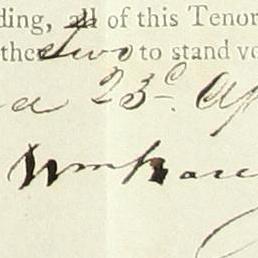 ding, all of this Tenor
the two to stand vo
a 23.
Wm